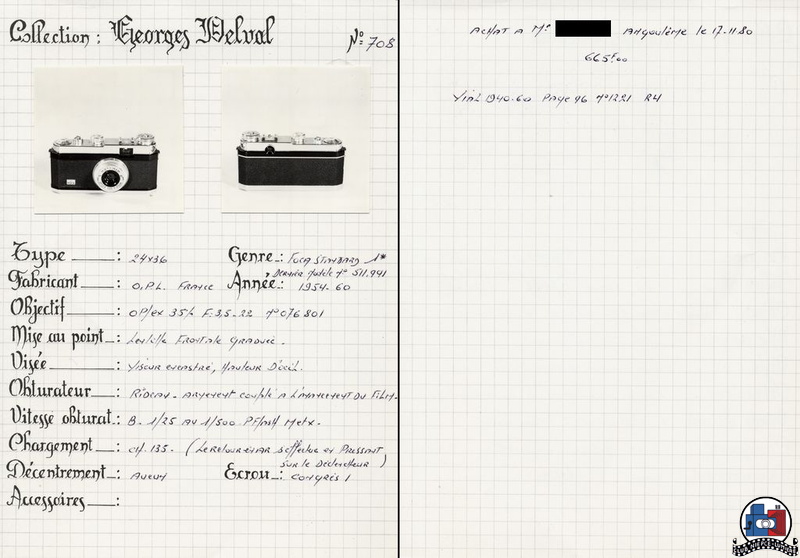 Collection : Georges Delval
N° 708
Type : 24x36
Genre : Foca Standard 1*
Dernier modèle n° 511.991
Fabricant : O.P.L. France
Année : 1954-60
Objectif : OPlex 35% F.3,5-22 n° 076801
Mise au point : Lentille Frontale Graduée.
Visée : Viseur encastré, Hauteur D'oeil.
Obturateur : Rideau - armement couplé a l'avancement du Film.
Vitesse obturat. : B. 1/25 au 1/500 P.Flash Metx.
Chargement : ch. 135. ( Le retour en AR s'effectue en Pressant
sur le Déclencheur )
Décentrement : Aucun
Ecrou : Congrès 1
Accessoires :
ACHAT A Mr Angoulême le 17.11.80
665F00
Vial 1940-60 Page 96 n°1221 R4